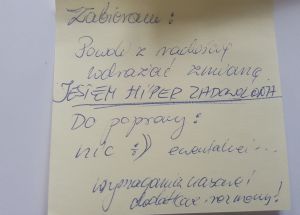 Zabieram:
Powoli z radością
wdrażać zmianę.
JESTEM HIPER ZADOWOLONA
Do poprawy:
nic :) ewentualnie...
wymagania
dodatkowe rozmowy!